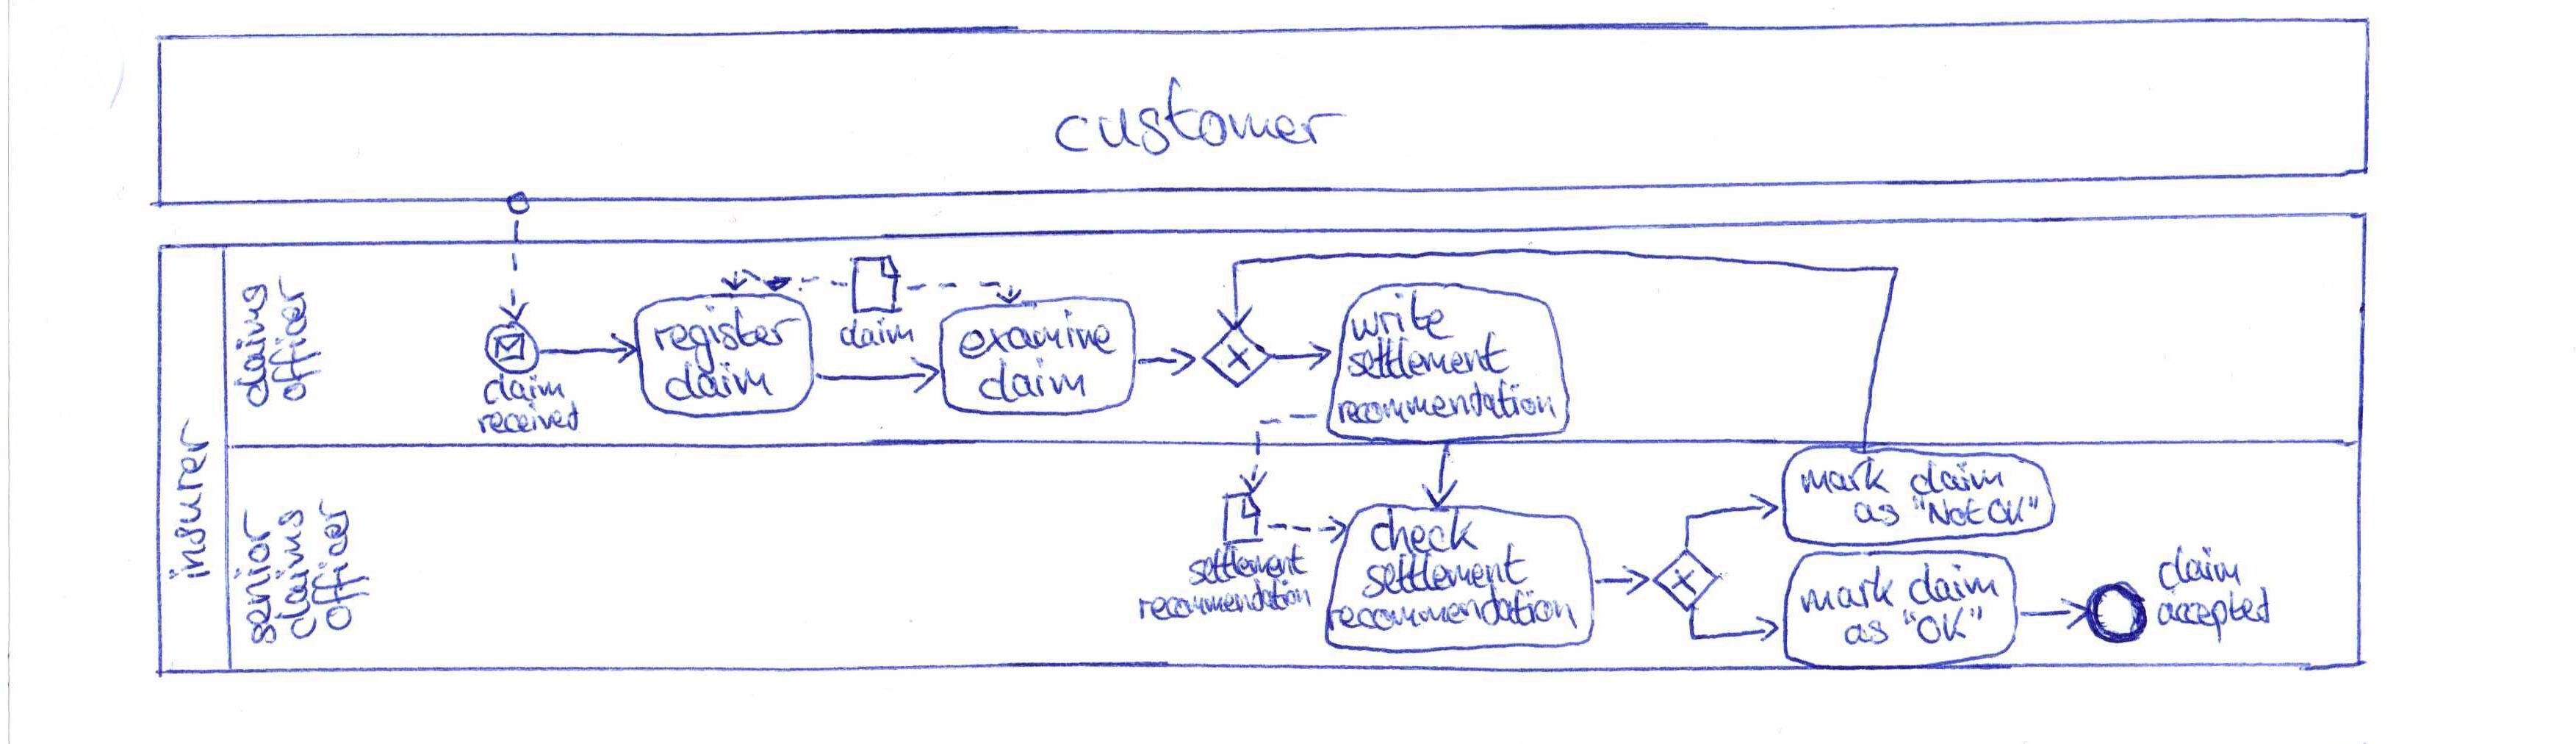 customer
insurer
claims
officer
claim
received
register
claim
claim
examine
claim
write
settlement
recommendation
senior
claims
officer
settlement
recommendation
check
settlement
recommendation
mark claim
as "Not OK"
mark claim
as "OK"
claim
accepted